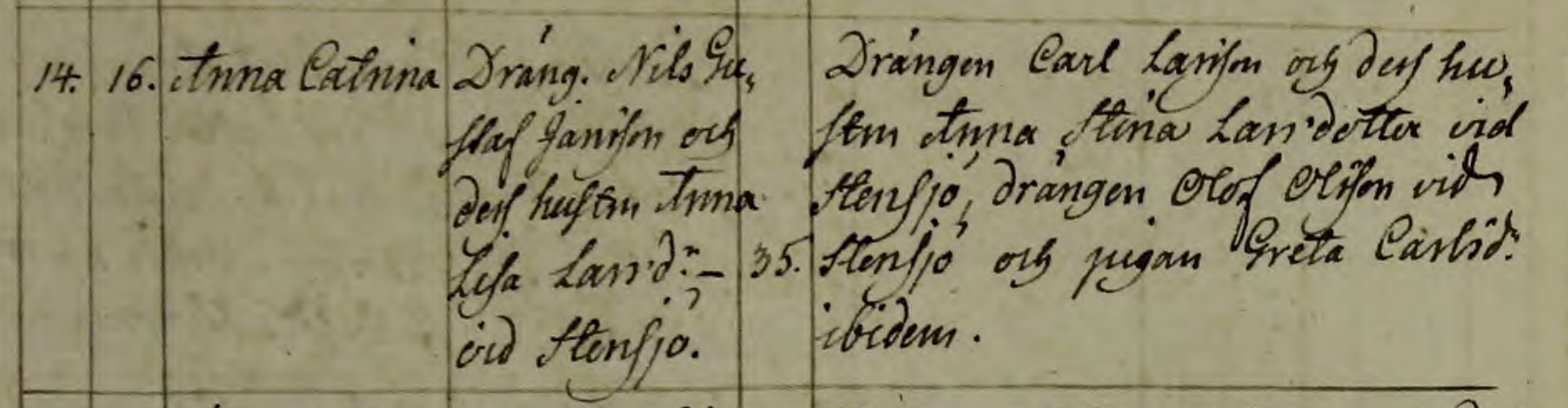 14. 16. Anna Catrina
Dräng. Nils Gu,
staf Jansson och
dess hustru Anna
Lisa Larsdr. – 35.
vid Stensjö.
Drängen Carl Larsson och dess hu,
stru Anna Stina Larsdotter vid
Stensjö, drängen Olof Olsson vid
Stensjö och pigan Greta Carlsdr.
ibidem.